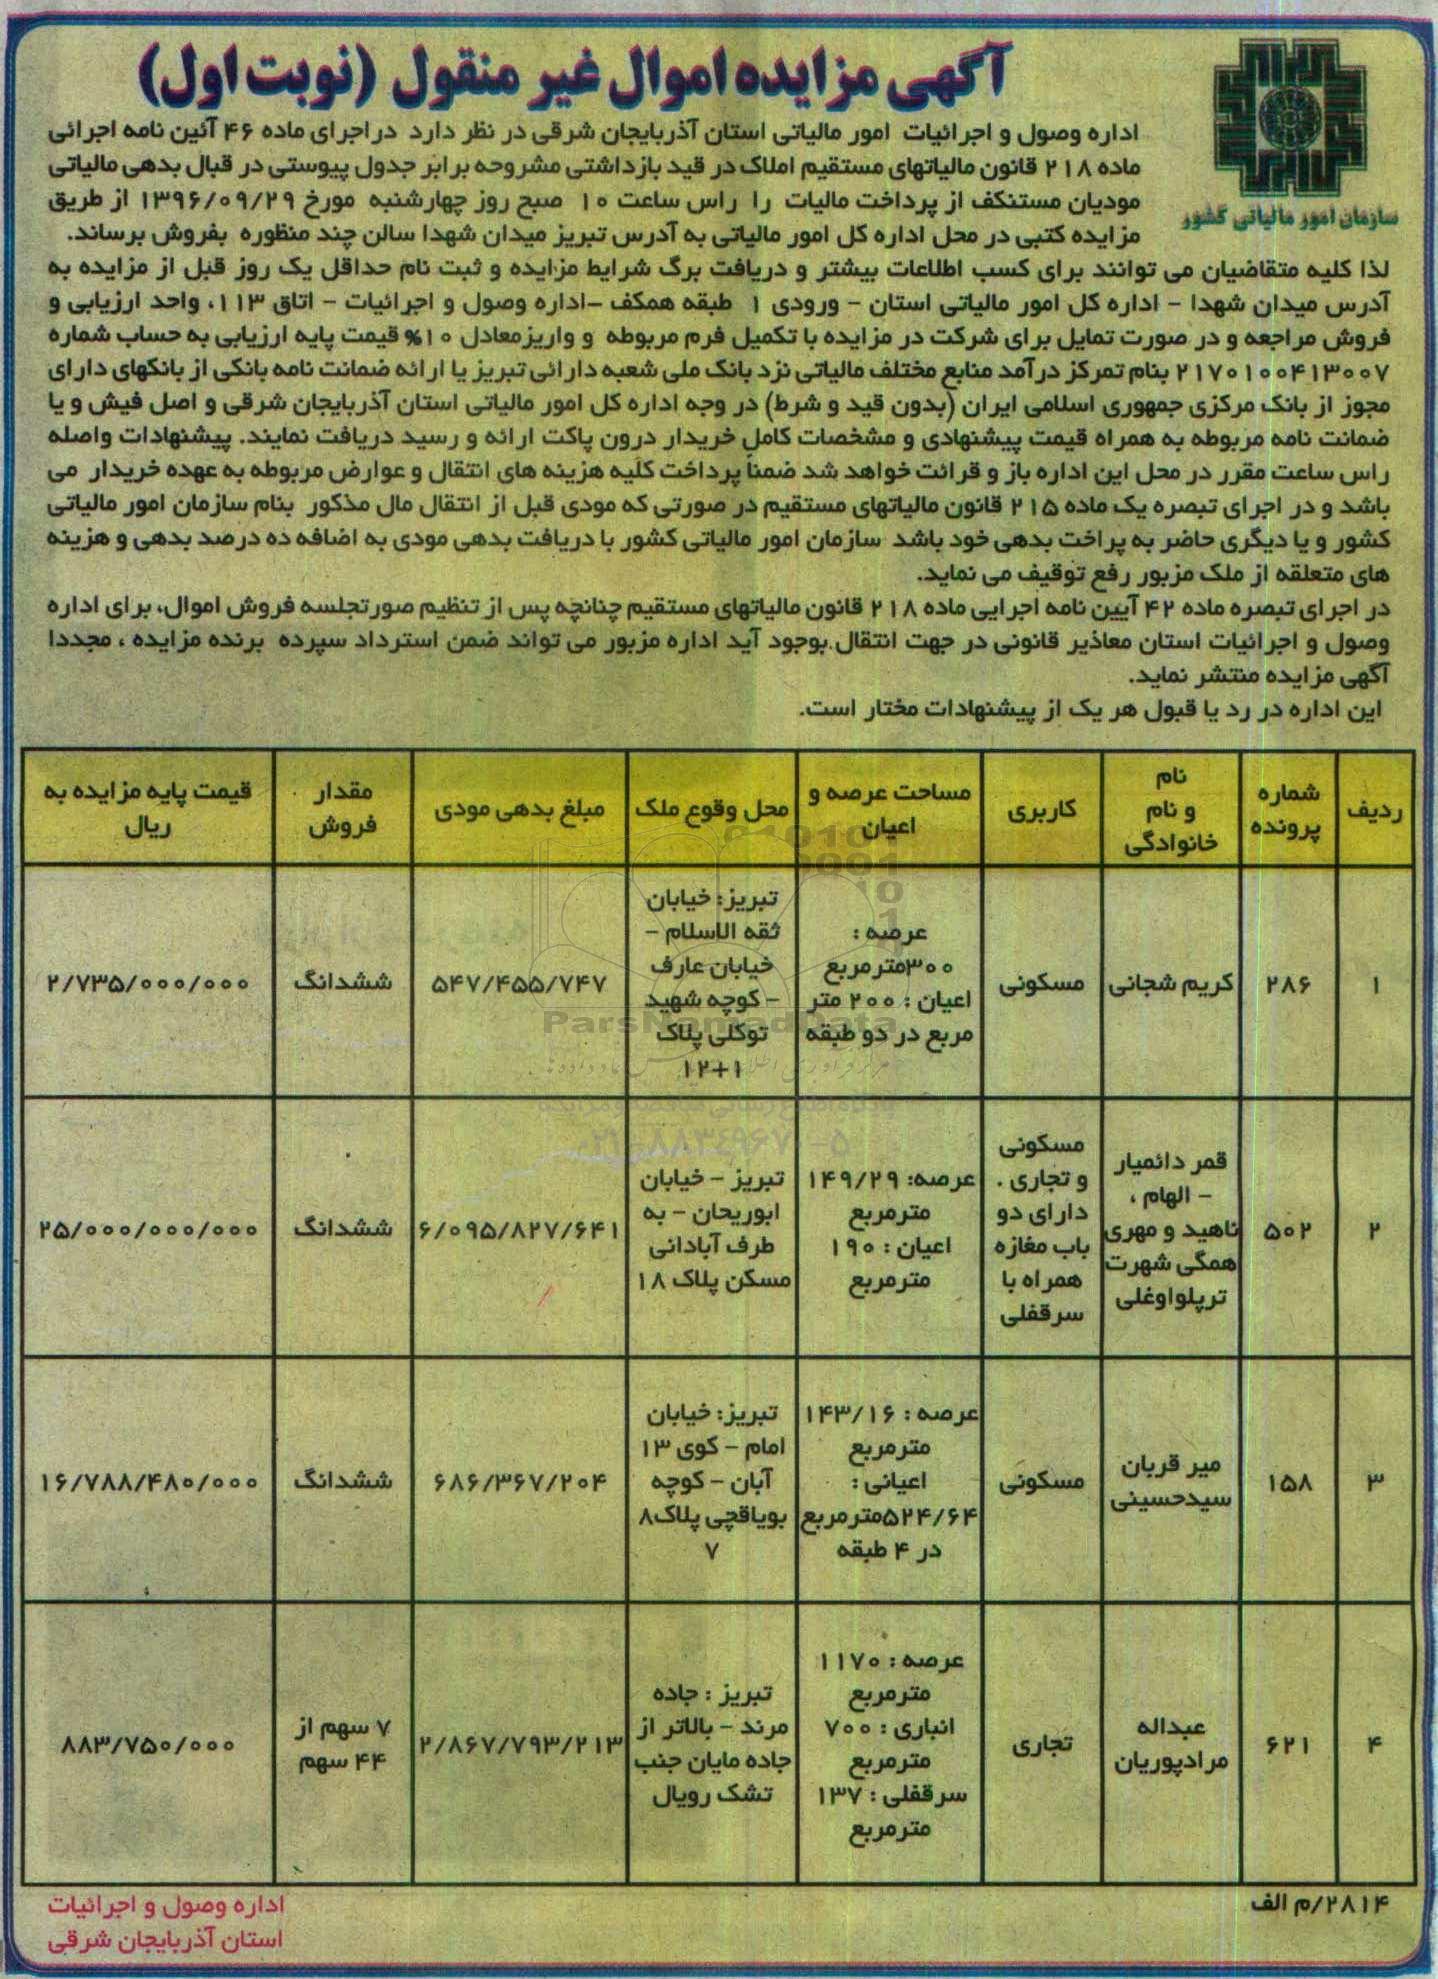 آگهی مزایده اموال غیر منقول (نوبت اول)
سازمان امور مالیاتی کشور
اداره وصول و اجرائیات امور مالیاتی استان آذربایجان شرقی در نظر دارد دراجرای ماده ۴۶ آئین نامه اجرائی
ماده ۲۱۸ قانون مالیاتهای مستقیم املاک در قید بازداشتی مشروحه برابر جدول پیوستی در قبال بدهی مالیاتی
مودیان مستنکف از پرداخت مالیات را راس ساعت ۱۰ صبح روز چهارشنبه مورخ ۱۳۹۶/۰۹/۲۹ از طریق
مزایده کتبی در محل اداره کل امور مالیاتی به آدرس تبریز میدان شهدا سالن چند منظوره بفروش برساند.
لذا کلیه متقاضیان می توانند برای کسب اطلاعات بیشتر و دریافت برگ شرایط مزایده و ثبت نام حداقل یک روز قبل از مزایده به
آدرس میدان شهدا – اداره کل امور مالیاتی استان – ورودی ۱ طبقه همکف –اداره وصول و اجرائیات – اتاق ۱۱۳، واحد ارزیابی و
فروش مراجعه و در صورت تمایل برای شرکت در مزایده با تکمیل فرم مربوطه و واریزمعادل ۱۰% قیمت پایه ارزیابی به حساب شماره
۲۱۷۰۱۰۰۴۱۳۰۰۷ بنام تمرکز درآمد منابع مختلف مالیاتی نزد بانک ملی شعبه دارائی تبریز یا ارائه ضمانت نامه بانکی از بانکهای دارای
مجوز از بانک مرکزی جمهوری اسلامی ایران (بدون قید و شرط) در وجه اداره کل امور مالیاتی استان آذربایجان شرقی و اصل فیش و یا
ضمانت نامه مربوطه به همراه قیمت پیشنهادی و مشخصات کامل خریدار درون پاکت ارائه و رسید دریافت نمایند. پیشنهادات واصله
راس ساعت مقرر در محل این اداره باز و قرائت خواهد شد ضمناً پرداخت کلیه هزینه های انتقال و عوارض مربوطه به عهده خریدار می
باشد و در اجرای تبصره یک ماده ۲۱۵ قانون مالیاتهای مستقیم در صورتی که مودی قبل از انتقال مال مذکور بنام سازمان امور مالیاتی
کشور و یا دیگری حاضر به پراخت بدهی خود باشد سازمان امور مالیاتی کشور با دریافت بدهی مودی به اضافه ده درصد بدهی و هزینه
های متعلقه از ملک مزبور رفع توقیف می نماید.
در اجرای تبصره ماده ۴۲ آیین نامه اجرایی ماده ۲۱۸ قانون مالیاتهای مستقیم چنانچه پس از تنظیم صورتجلسه فروش اموال، برای اداره
وصول و اجرائیات استان معاذیر قانونی در جهت انتقال بوجود آید اداره مزبور می تواند ضمن استرداد سپرده برنده مزایده ، مجددا
آگهی مزایده منتشر نماید.
این اداره در رد یا قبول هر یک از پیشنهادات مختار است.
ردیف
شماره
پرونده
نام
و نام
خانوادگی
کاربری
مساحت عرصه و
اعیان
محل وقوع ملک
مبلغ بدهی مودی
مقدار
فروش
قیمت پایه مزایده به
ریال
۱
۲۸۶
کریم شجانی
مسکونی
عرصه :
۳۰۰مترمربع
اعیان : ۲۰۰ متر
مربع در دو طبقه
تبریز: خیابان
ثقه الاسلام –
خیابان عارف
– کوچه شهید
توکلی پلاک
۱۲+۱
۵۴۷/۴۵۵/۷۴۷
ششدانگ
۲/۷۳۵/۰۰۰/۰۰۰
۲
۵۰۲
قمر دائمیار
– الهام ،
ناهید و مهری
همگی شهرت
ترپلواوغلی
مسکونی
و تجاری .
دارای دو
باب مغازه
همراه با
سرقفلی
عرصه: ۱۴۹/۲۹
مترمربع
اعیان : ۱۹۰
مترمربع
تبریز – خیابان
ابوریحان – به
طرف آبادانی
مسکن پلاک ۱۸
۶/۰۹۵/۸۲۷/۶۴۱
ششدانگ
۲۵/۰۰۰/۰۰۰/۰۰۰
۳
۱۵۸
میر قربان
سیدحسینی
مسکونی
عرصه : ۱۴۳/۱۶
مترمربع
اعیانی :
۵۲۴/۶۴مترمربع
در ۴ طبقه
تبریز: خیابان
امام – کوی ۱۳
آبان – کوچه
بویاقچی پلاک۸
۷
۶۸۶/۳۶۷/۲۰۴
ششدانگ
۱۶/۷۸۸/۴۸۰/۰۰۰
۴
۶۲۱
عبداله
مرادپوریان
تجاری
عرصه : ۱۱۷۰
مترمربع
انباری : ۷۰۰
مترمربع
سرقفلی : ۱۳۷
مترمربع
تبریز : جاده
مرند – بالاتر از
جاده مایان جنب
تشک رویال
۲/۸۶۷/۷۹۳/۲۱۳
۷ سهم از
۴۴ سهم
۸۸۳/۷۵۰/۰۰۰
ParsNamadData
۰۲۱-۸۸۳۴۹۶۷۰-۵
۲۸۱۴/م الف
اداره وصول و اجرائیات
استان آذربایجان شرقی